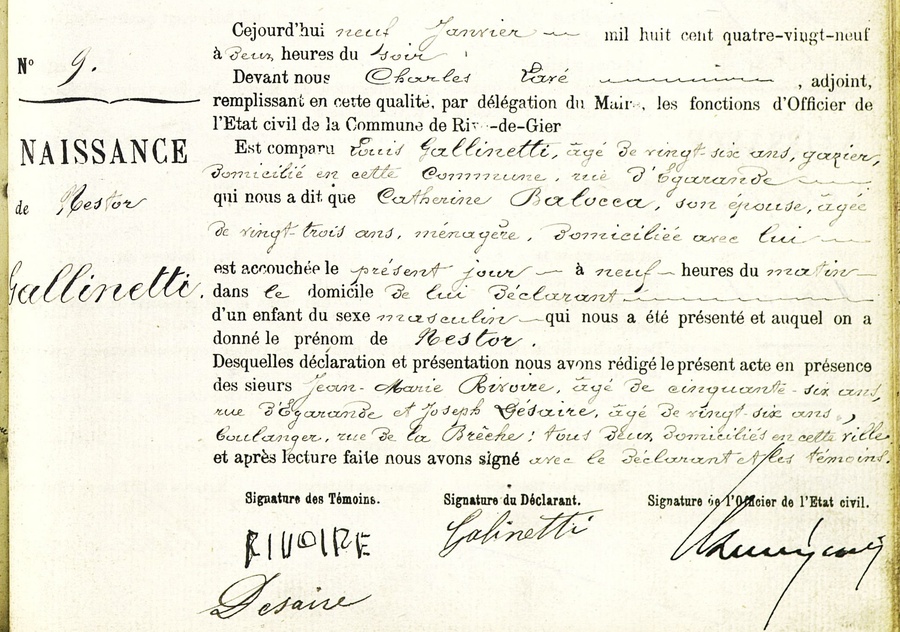 N° 9.
NAISSANCE
de Nestor
Gallinetti.
Cejourd'hui neuf Janvier mil huit cent quatre-vingt-neuf
à deux heures du soir
Devant nous Charles , adjoint,
remplissant en cette qualité, par délégation du Maire, les fonctions d'Officier de
l'Etat civil de la Commune de Rive-de-Gier
Est comparu Louis Gallinetti, âgé de vingt-six ans, gazier,
domicilié en cette Commune, rue d'Égarande
qui nous a dit que Catherine Balocca, son épouse, âgée
de vingt-trois ans, ménagère, domiciliée avec lui
est accouchée le présent jour à neuf heures du matin
dans le domicile de lui déclarant
d'un enfant du sexe masculin qui nous a été présenté et auquel on a
donné le prénom de Nestor.
Desquelles déclaration et présentation nous avons rédigé le présent acte en présence
des sieurs Jean-Marie Rivoire, âgé de cinquante-six ans,
rue d'Égarande et Joseph Désaire, âgé de vingt-six ans,
boulanger, rue de la Brèche; tous deux domiciliés en cette ville
et après lecture faite nous avons signé avec le déclarant et les témoins.
Signature des Témoins. Signature du Déclarant. Signature de l'Officier de l'Etat civil.
RIVOIRE Galinetti
Desaire